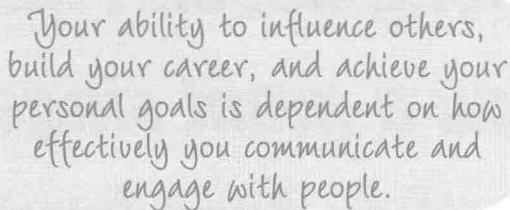 Your ability to influence others,
build your career, and achieve your
personal goals is dependent on how
effectively you communicate and
engage with people.